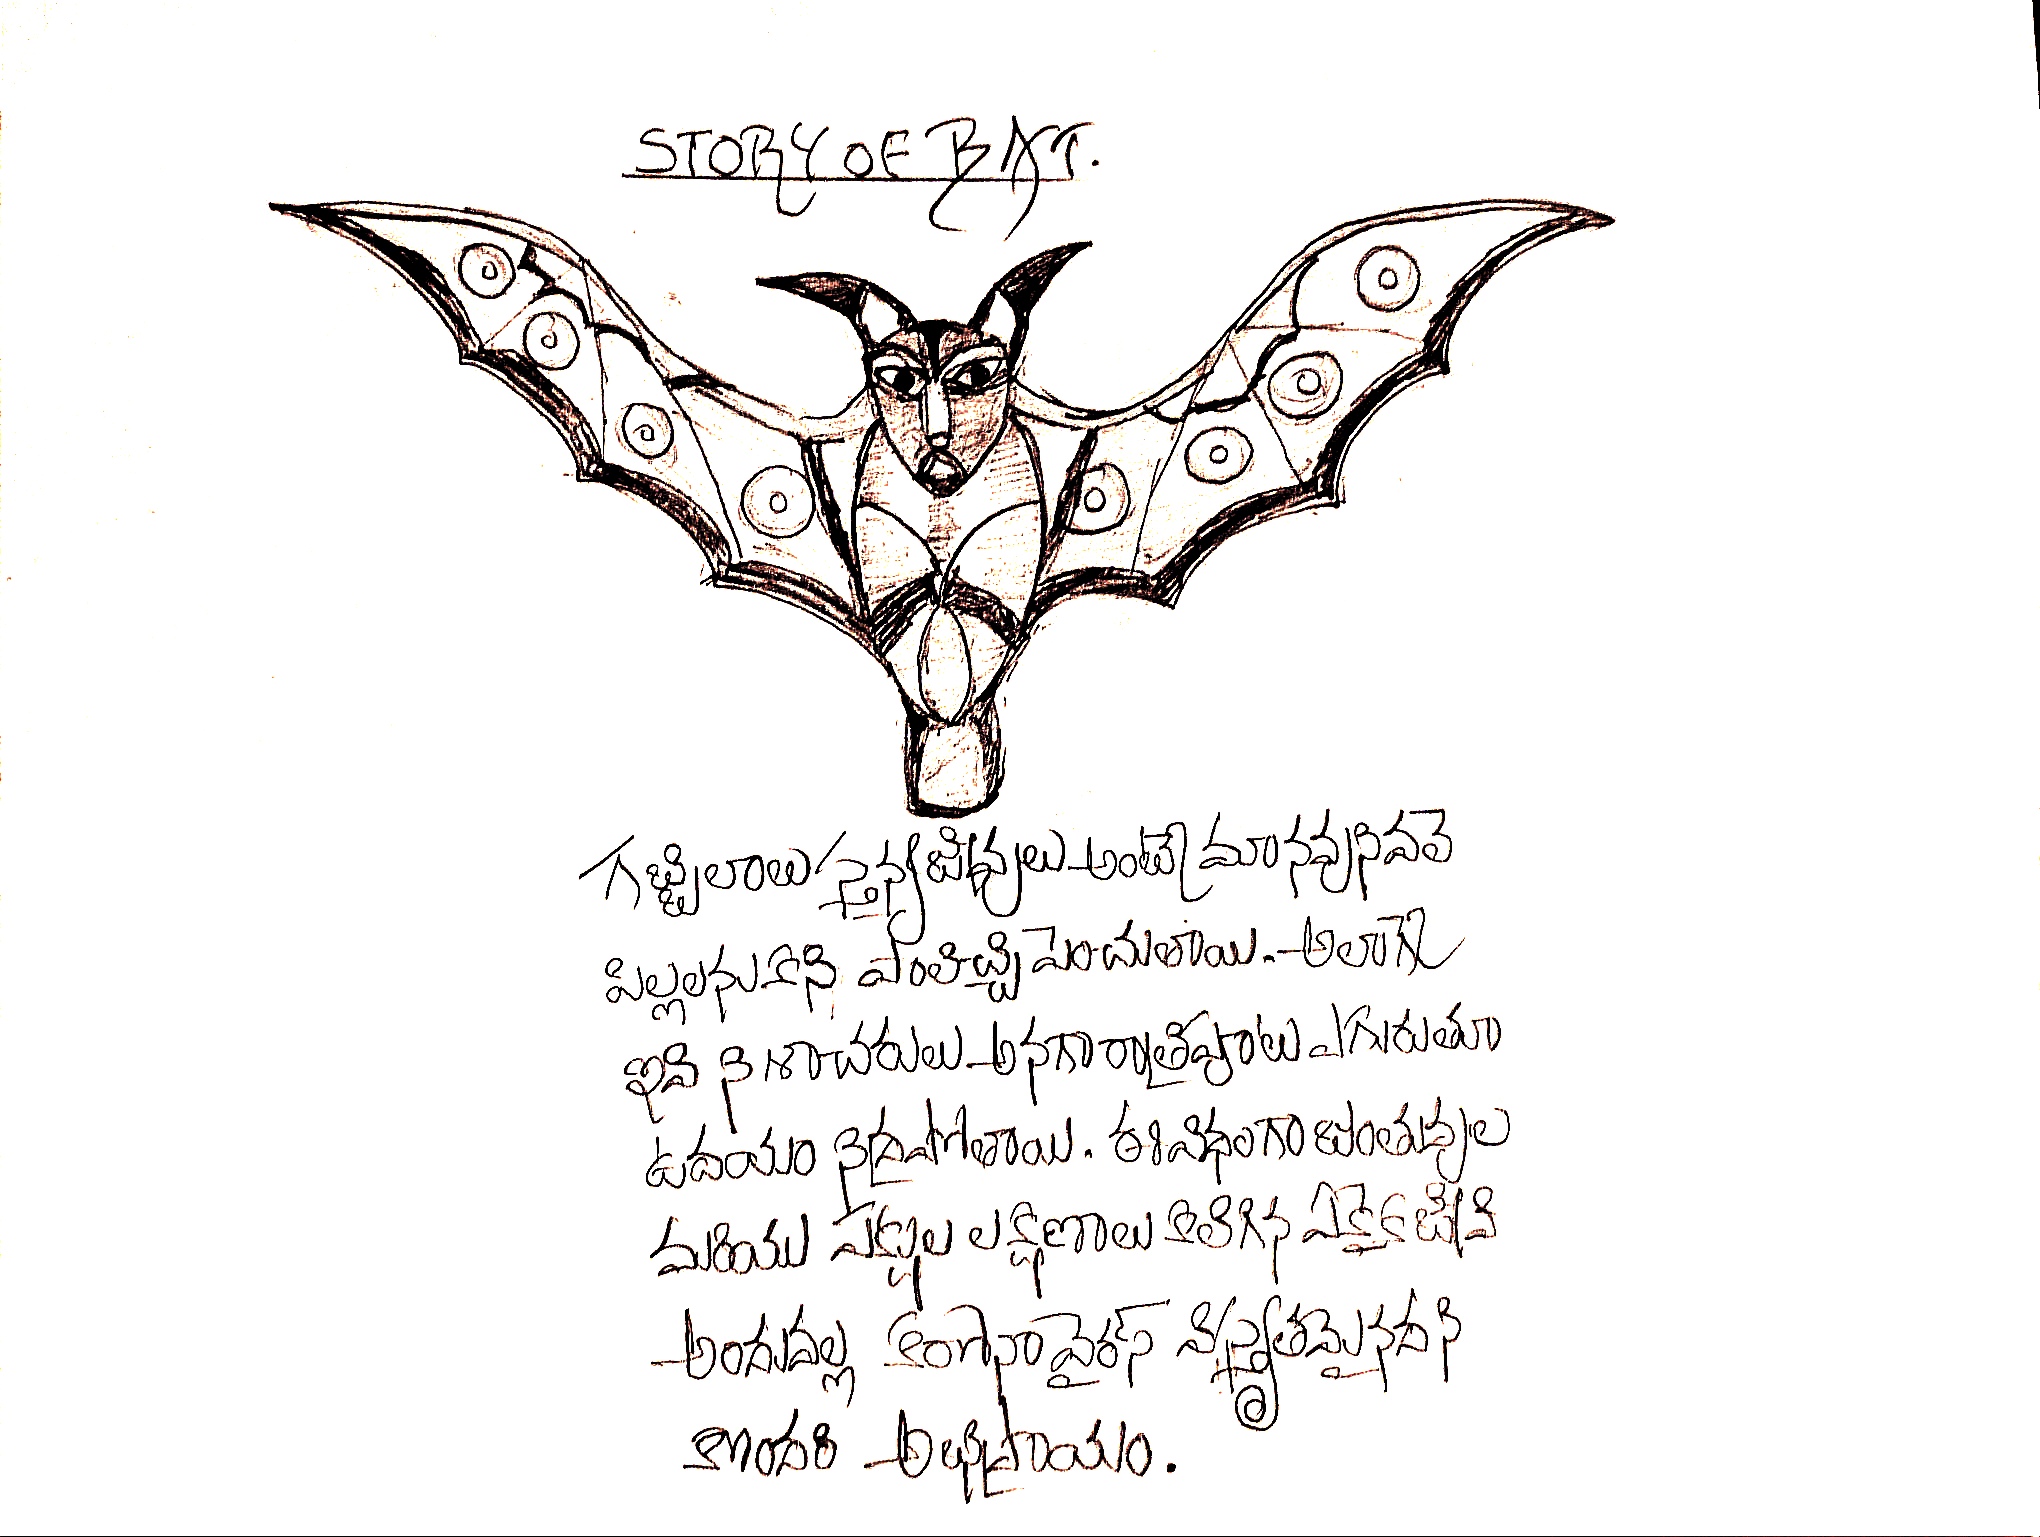 STORY OF BAT.
గబ్బిలాలు స్తన్యజీవులు అంటే మానవునివలె
పిల్లలనుకని పాలిచ్చి పెంచుతాయి. అలాగే
ఇవి నిశాచరులు అనగా రాత్రిపూటలు ఎగురుతూ
ఉదయం నిద్రపోతాయి. ఈవిధంగా జంతువుల
మరియు పక్షుల లక్షణాలు కలిగిన ఏకైక జీవి
అందువల్ల కరోనావైరస్ విస్తృతమైనదని
కొందరి అభిప్రాయం.